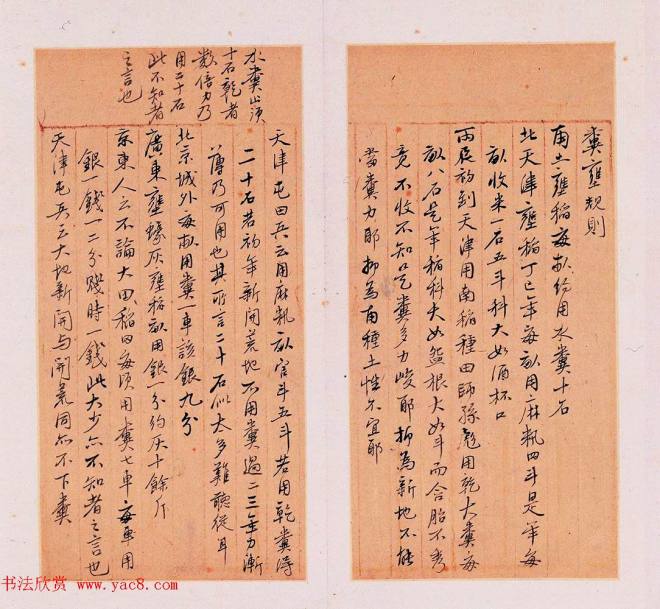 糞壅規則
南土壅稻每畝約用水糞十石
北天津壅稻丁巳年每畝用麻籸四斗是年每
畝收米一石五斗科大如酒杯口
丙辰初到天津用南稻種田師孫彪用乾大糞每
畝八石是年稻科大如盌根大如斗而含胎不秀
竟不收不知是糞多力峻耶抑為新地不能
當糞力耶抑為南種土性不宜耶
水糞必須
十石乾者
數倍力乃
用二十石
此不知者
之言也
天津屯田兵云用麻籸畝官斗五斗若用乾糞得
二十石若初年新開荒地不用糞過二三年力漸
薄乃可用也其所言二十石似太多難聽從耳
北京城外每畝用糞一車該銀九分
廣東壅蠔灰壅稻畝用銀一分約灰十餘斤
京東人云不論大田稻田每頃用糞七車每車用
銀一錢一二分賤時一錢此大少亦不知者之言也
天津屯兵云大地新開与開荒同亦不下糞
书法欣赏 www.yac8.com